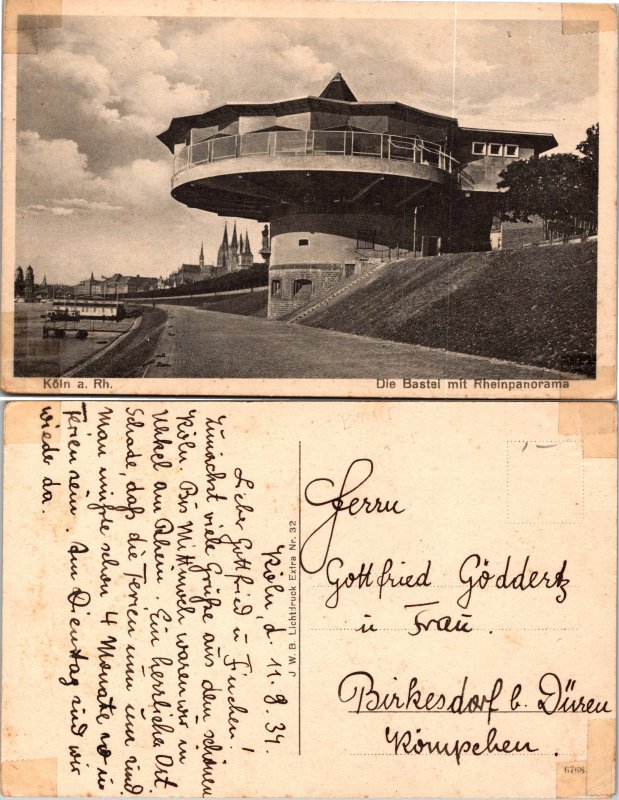 Köln a. Rh.
Die Bastei mit Rheinpanorama
Köln, d. 11.8.34.
Liebe Gottfried u Finchen!
Zunächst viele Grüße aus dem schönen
Köln. Bis Mittwoch waren wir in
am Rhein. Ein herrliche Ort
Schade, daß die Ferien nun um sind
Man müßte schon 4 Monate so in
Ferien sein. Am Dienstag sind wir
wieder da.
J. W. B. Lichtdruck Extra Nr. 32
Herrn
Gottfried Göddertz
u Frau.
Birkesdorf b. Düren
Kömpchen.
6768